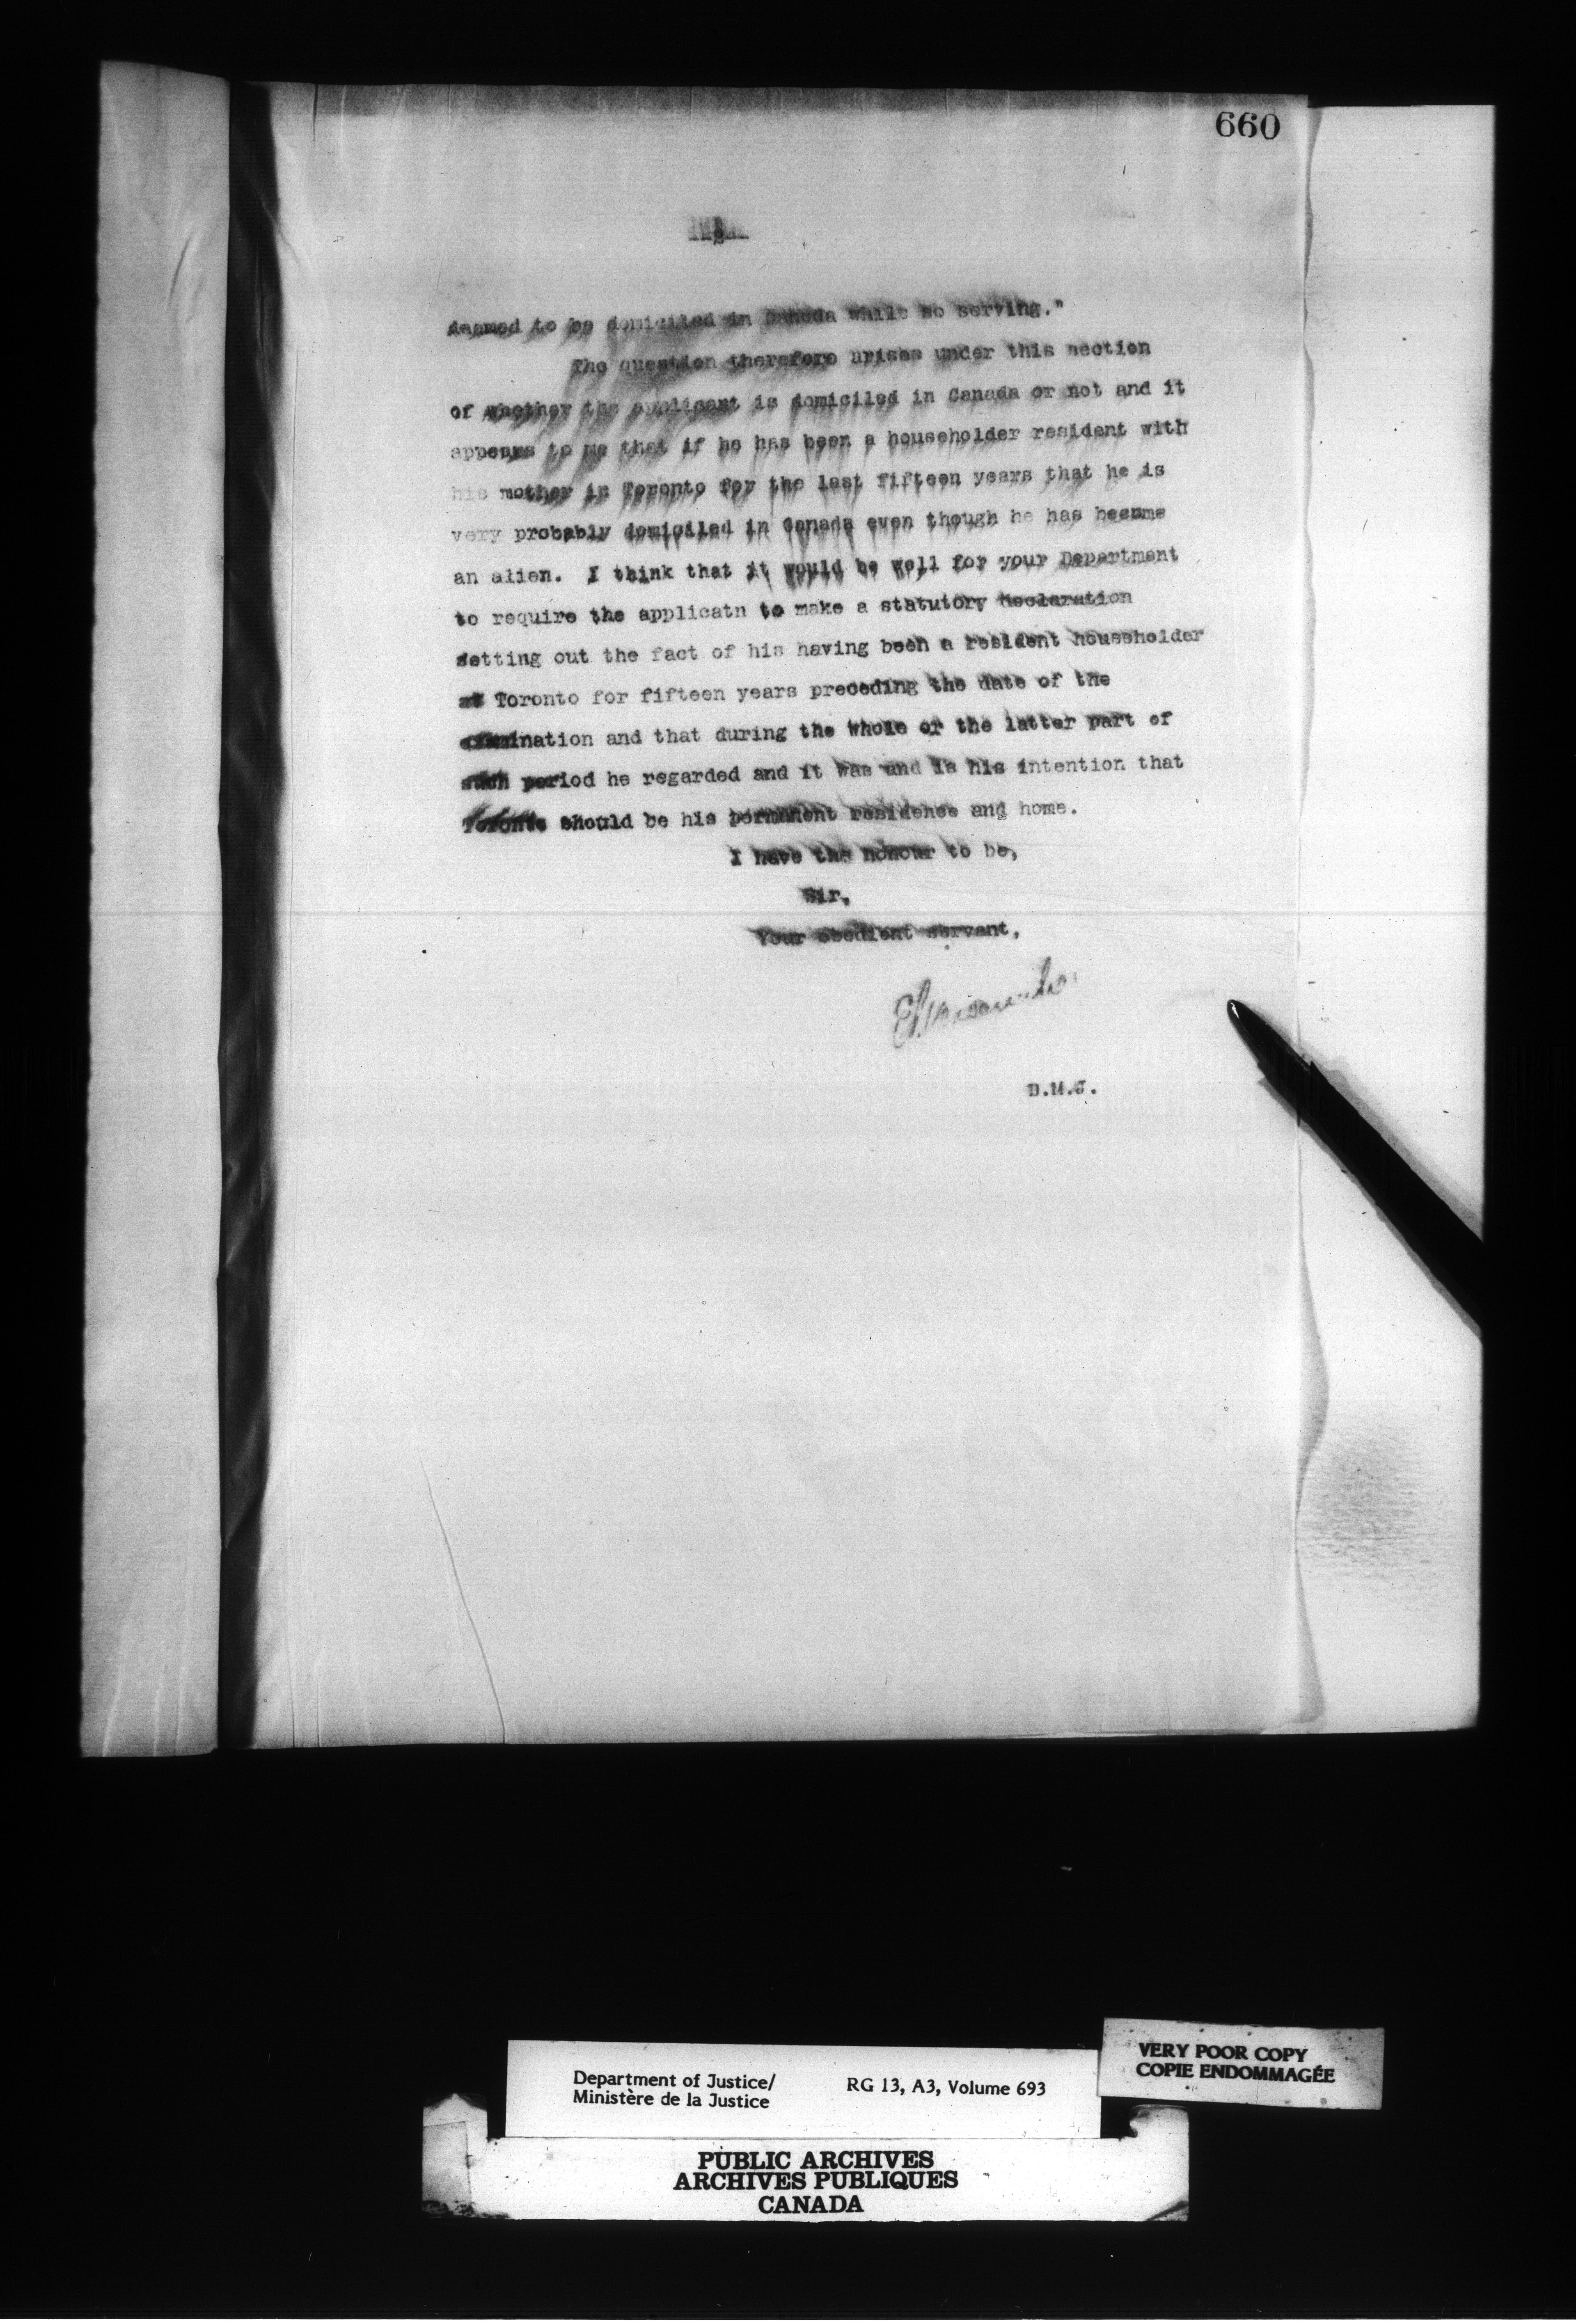 660
deemed to be domiciled in Canada while so serving."
The question therefore arises under this section
of whether the applicant is domiciled in Canada or not and it
appears to me that if he has been a householder resident with
his mother in Toronto for the last fifteen years that he is
very probably domiciled in Canada even though he has become
an alien. I think that it would be well for your Department
to require the applicatn to make a statutory declaration
setting out the fact of his having been a resident householder
at Toronto for fifteen years preceding the date of the
examination and that during the whole or the latter part of
such period he regarded and it was and is his intention that
Toronto should be his permanent residence and home.
I have the honour to be,
Sir,
Your obedient servant,
D.M.J.
VERY POOR COPY
COPIE ENDOMMAGÉE
Department of Justice/ RG 13, A3, Volume 693
Ministère de la Justice
PUBLIC ARCHIVES
ARCHIVES PUBLIQUES
CANADA